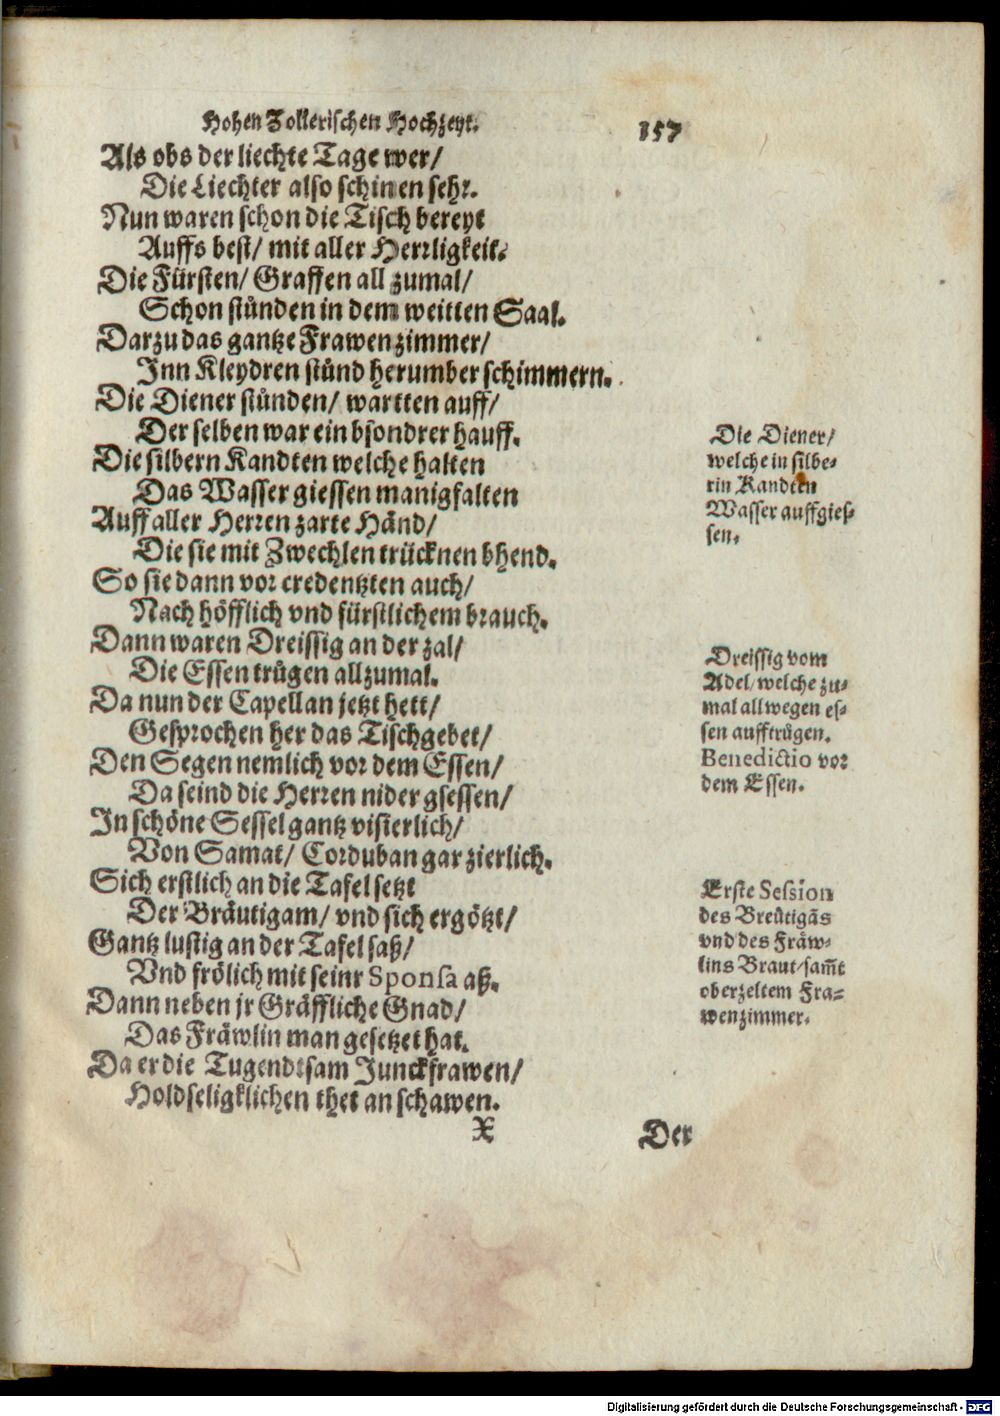 Hohen Zollerischen Hochzeyt. 157
Als obs der liechte Tage wer/
Die Liechter also schinen sehr.
Nun waren schon die Tisch bereyt
Auffs best/ mit aller Herrligkeit.
Die Fürsten/ Graffen all zumal/
Schon stůnden in dem weitten Saal.
Darzu das gantze Frawenzimmer/
Inn Kleydren stůnd herumber schimmern.
Die Diener stůnden/ wartten auff/
Der selben war ein bsondrer hauff.
Die silbern Kandten welche halten
Das Wasser giessen manigfalten
Auff aller Herren zarte Händ/
Die sie mit Zwechlen trücknen bhend.
So sie dann vor credentzten auch/
Nach höfflich vnd fürstlichem brauch.
Dann waren Dreissig an der zal/
Die Essen trůgen allzumal.
Da nun der Capellan jetzt hett/
Gesprochen her das Tischgebet/
Den Segen nemlich vor dem Essen/
Da seind die Herren nider gsessen/
In schöne Sessel gantz visierlich/
Von Samat/ Corduban gar zierlich.
Sich erstlich an die Tafel setzt
Der Bräutigam/ vnd sich ergötzt/
Gantz lustig an der Tafel saß/
Vnd frölich mit seinr Sponsa aß.
Dann neben jr Gräffliche Gnad/
Das Fräwlin man gesetzet hat.
Da er die Tugendtsam Junckfrawen/
Holdseligklichen thet an schawen.
X Der
Die Diener/
welche in silbe-
rin Kandten
Wasser auffgies-
sen.
Dreissig vom
Adel/ welche zu-
mal allwegen es-
sen aufftrůgen.
Benedictio vor
dem Essen.
Erste Session
des Breütigãs
vnd des Fräw-
lins Braut/ sam̃t
oberzeltem Fra-
wenzimmer.
Digitalisierung gefördert durch die Deutsche Forschungsgemeinschaft - DFG